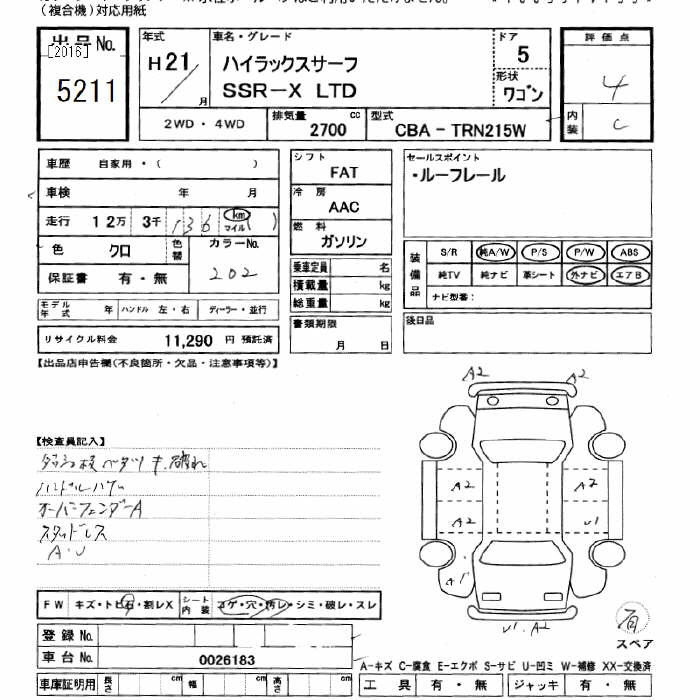 （複合機）対応用紙
出品No.
[2016]
5211
年式
H21/
月
車名・グレード
ハイラックスサーフ
SSR-X LTD
ドア
5
形状
ワゴン
評価点
4
内装
C
2WD・4WD
排気量
2700
cc
型式
CBA - TRN215W
車歴
自家用・（　　）
車検
年
月
走行
12万
3千
136
km
マイル
( )
色
クロ
色替
カラーNo.
202
保証書
有・無
モデル年式
年
ハンドル
左・右
ディーラー・並行
リサイクル料金
11,290
円
預託済
シフト
FAT
冷房
AAC
燃料
ガソリン
乗車定員
名
積載量
kg
総重量
kg
書類期限
月
日
セールスポイント
・ルーフレール
装備品
S/R
純A/W
P/S
P/W
ABS
純TV
純ナビ
革シート
外ナビ
エアB
ナビ型番：
後日品
【出品店申告欄(不良箇所・欠品・注意事項等)】
【検査員記入】
ハンドルハゲ
オーバーフェンダーA
スタッドレス
A・U
A2
A2
A2
A2
A2
U1
A1
U1.A2
FW
キズ・トビ石・割レX
シート内装
コゲ・穴・汚レ・シミ・破レ・スレ
登録No.
車台No.
0026183
車庫証明用
長さ
cm
幅
cm
高さ
cm
スペア
A-キズ C-腐食 E-エクボ S-サビ U-凹ミ W-補修 XX-交換済
工具
有・無
ジャッキ
有・無